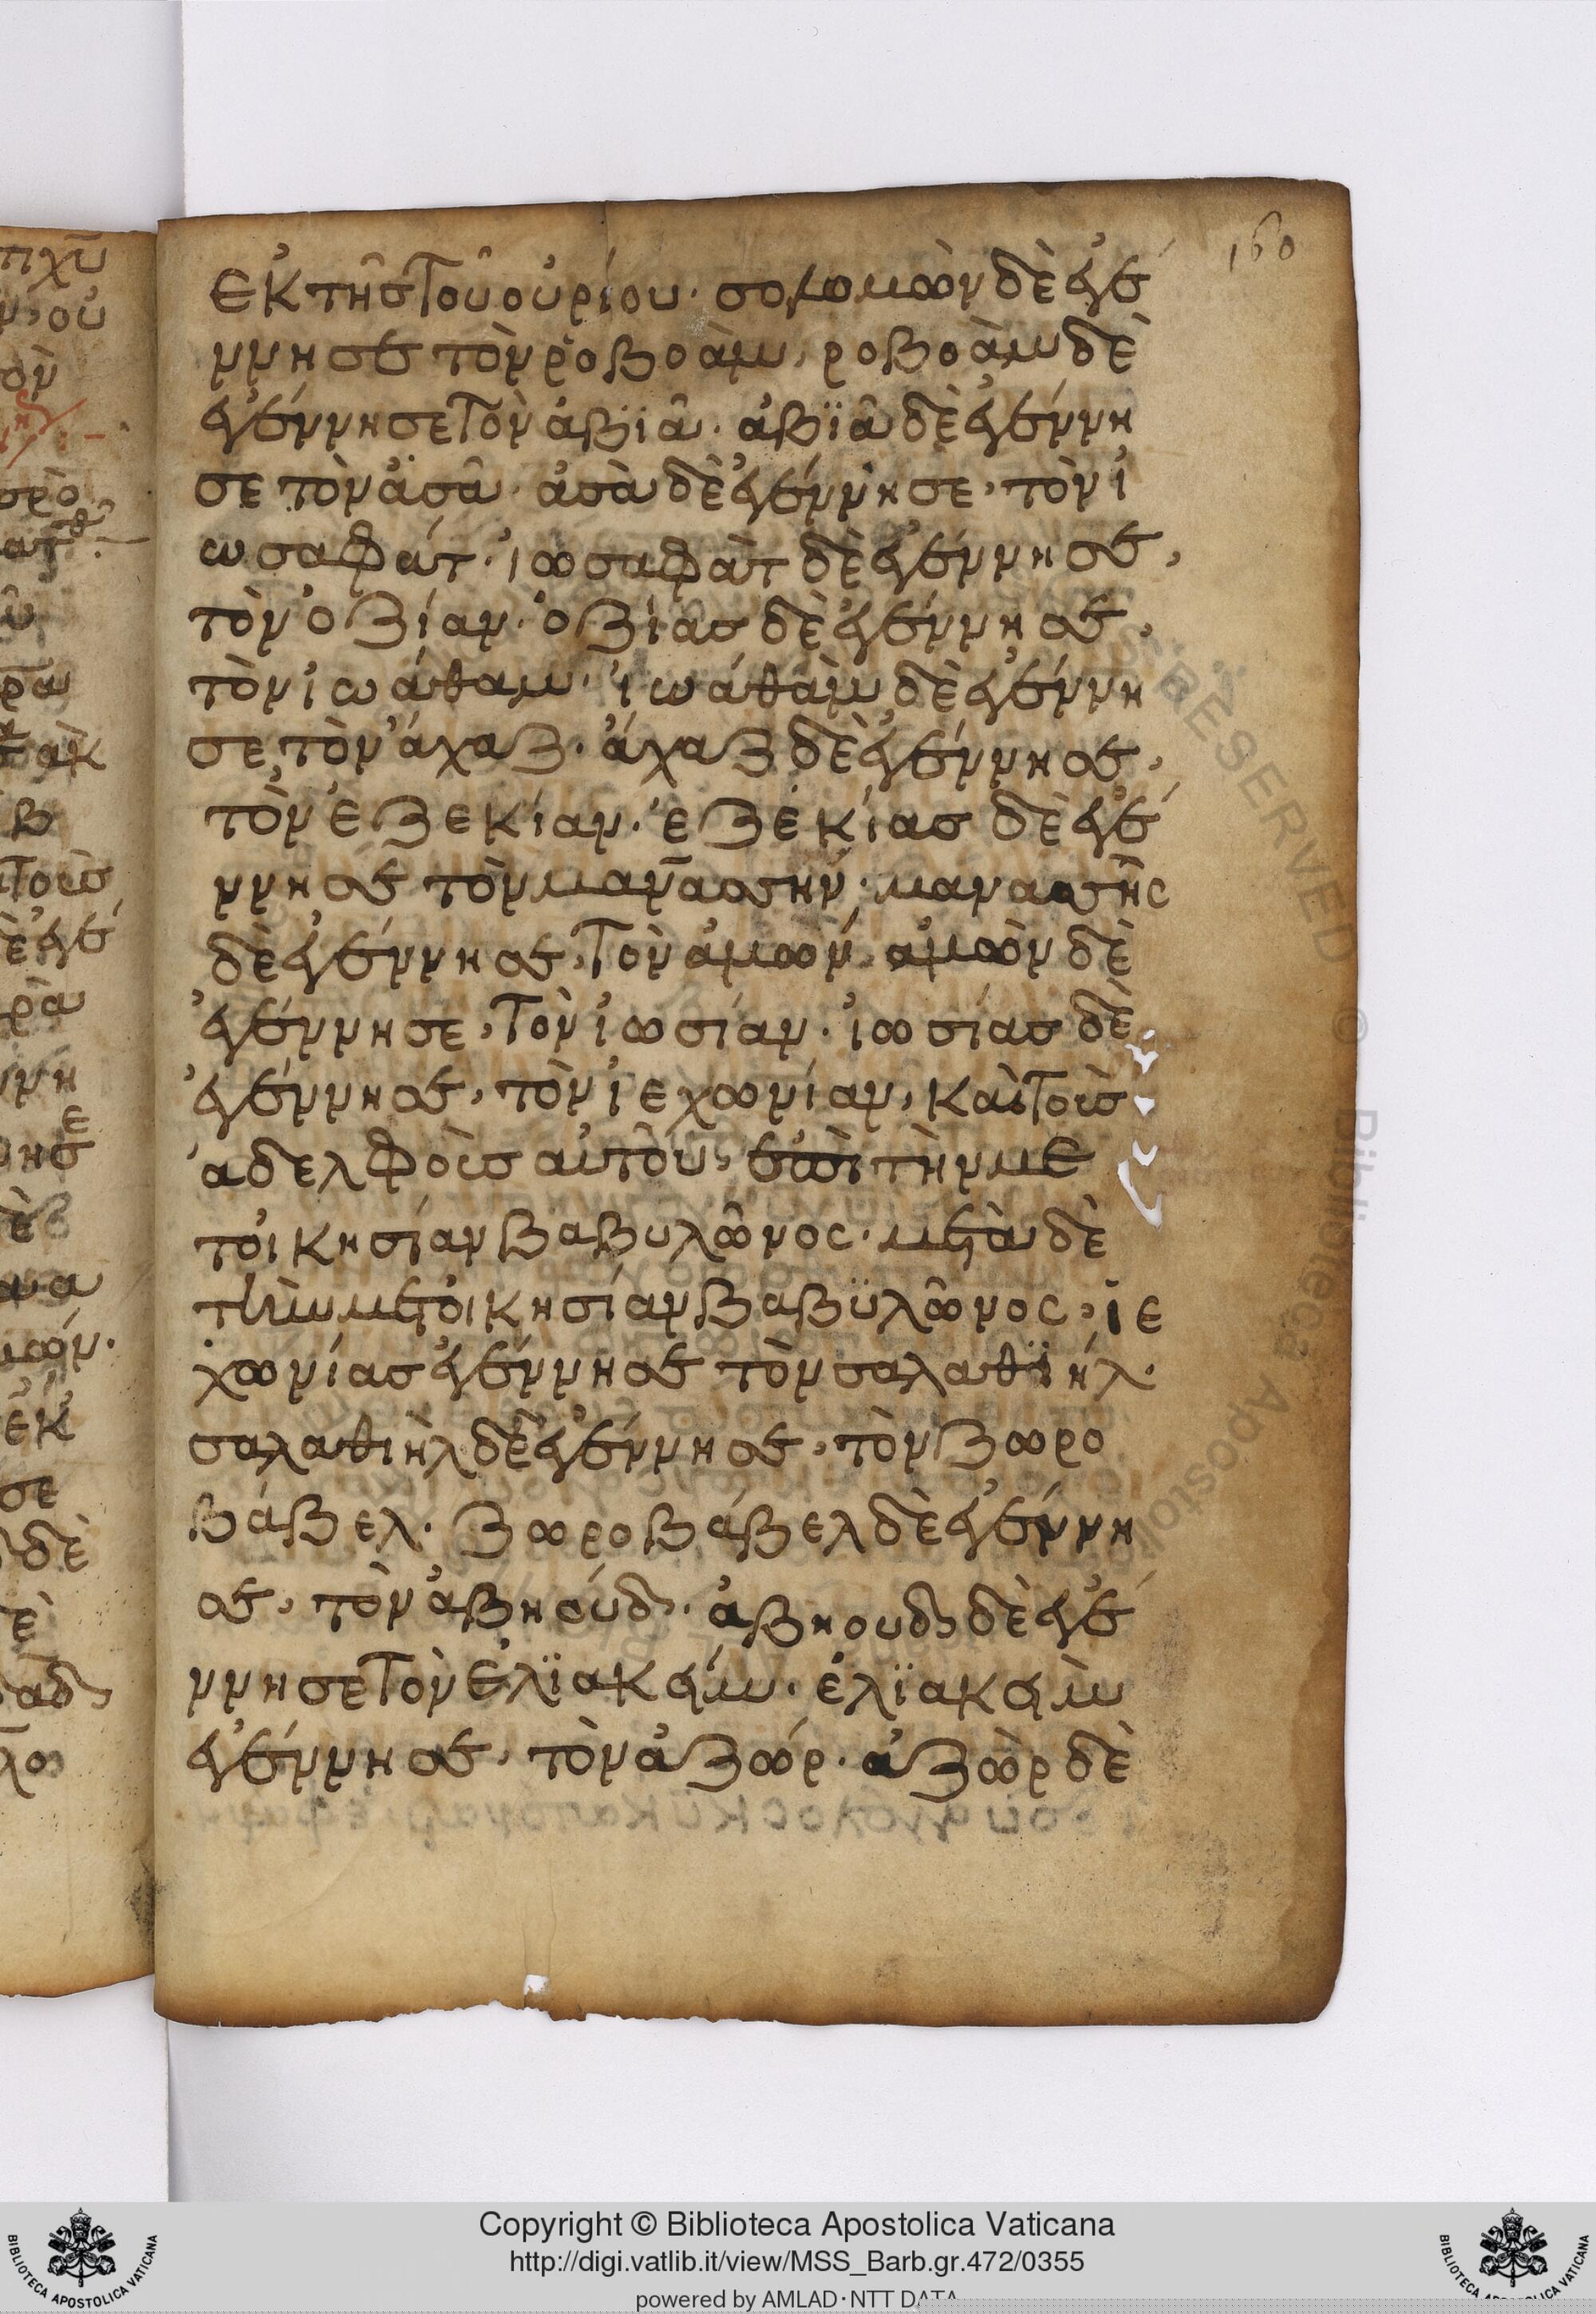 160
ἐκ τῆς τοῦ οὐρίου· σολομὼν δὲ ἐγέ
ννησε τὸν ῥοβοάμ, ροβοὰμ δὲ
ἐγέννησε τὸν ἀβϊᾶ· ἀβϊᾶ δὲ ἐγέννη
σε τὸν ἀσᾶ· ἀσὰ δὲ ἐγέννησε, τὸν ἰ
ωσαφάτ· ἰωσαφὰτ δὲ ἐγέννησε,
τὸν ὀζίαν· ὀζίας δὲ ἐγέννησε,
τὸν ἰωάθαμ· ἰωάθὰμ δὲ ἐγέννη
σε, τὸν ἄχαζ· ἄχαζ δὲ ἐγέννησε,
τὸν ἐζεκίαν· ἐζεκίας δὲ ἐγέ
ννησε τὸν μανασσήν· μανασσῆς
δὲ ἐγέννησε, τὸν ἀμών· ἀμὼν δὲ
ἐγέννησε, τὸν ἰωσίαν· ἰωσίας δὲ
ἐγέννησε, τὸν ἰεχωνίαν, καὶ τοὺς
ἀδελφοὺς αὐτοῦ, ἐπὶ τὴν με
τοικησίαν βαβυλῶνος· μετὰ δὲ
τὴν μετοικησίαν βαβϋλῶνος, ἰε
χωνίας ἐγέννησε τὸν σαλαθϊήλ·
σαλαθιὴλ δὲ ἐγέννησε, τὸν ζορο
βάβελ· ζοροβάβελ δὲ ἐγέννη
σε, τὸν ἀβηούδ, · ἀβηουδ, δὲ ἐγέ
ννησε τὸν ἐλϊακείμ· ἐλϊακεὶμ
ἐγέννησε, τὸν ἀζώρ· ἀζὼρ δὲ
RESERVED © Biblioteca Apostolica
Copyright © Biblioteca Apostolica Vaticana
http://digi.vatlib.it/view/MSS_Barb.gr.472/0355
powered by AMLAD·NTT DATA
BIBLIOTECA APOSTOLICA VATICANA
BIBLIOTECA APOSTOLICA VATICANA